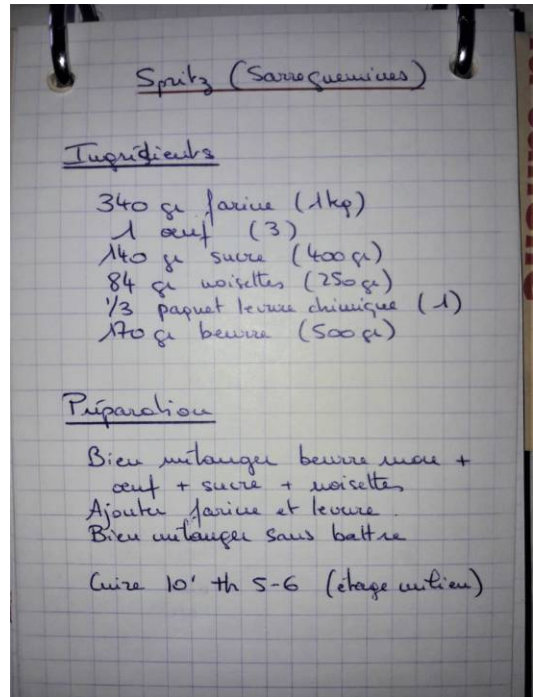 Spritz (Sarreguemines)
Ingrédients
340 gr farine (1kg)
1 œuf (3)
140 gr sucre (400 gr)
84 gr noisettes (250 gr)
1/3 paquet levure chimique (1)
170 gr beurre (500 gr)
Préparation
Bien mélanger beurre mou +
œuf + sucre + noisettes
Ajouter farine et levure.
Bien mélanger sans battre
Cuire 10' th 5-6 (étage milieu)